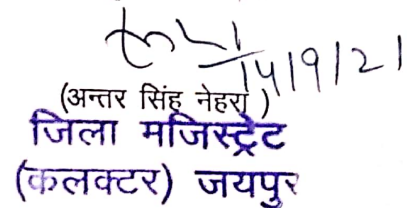 14/9/21
(अन्तर सिंह नेहरा)
जिला मजिस्ट्रेट
(कलक्टर) जयपुर